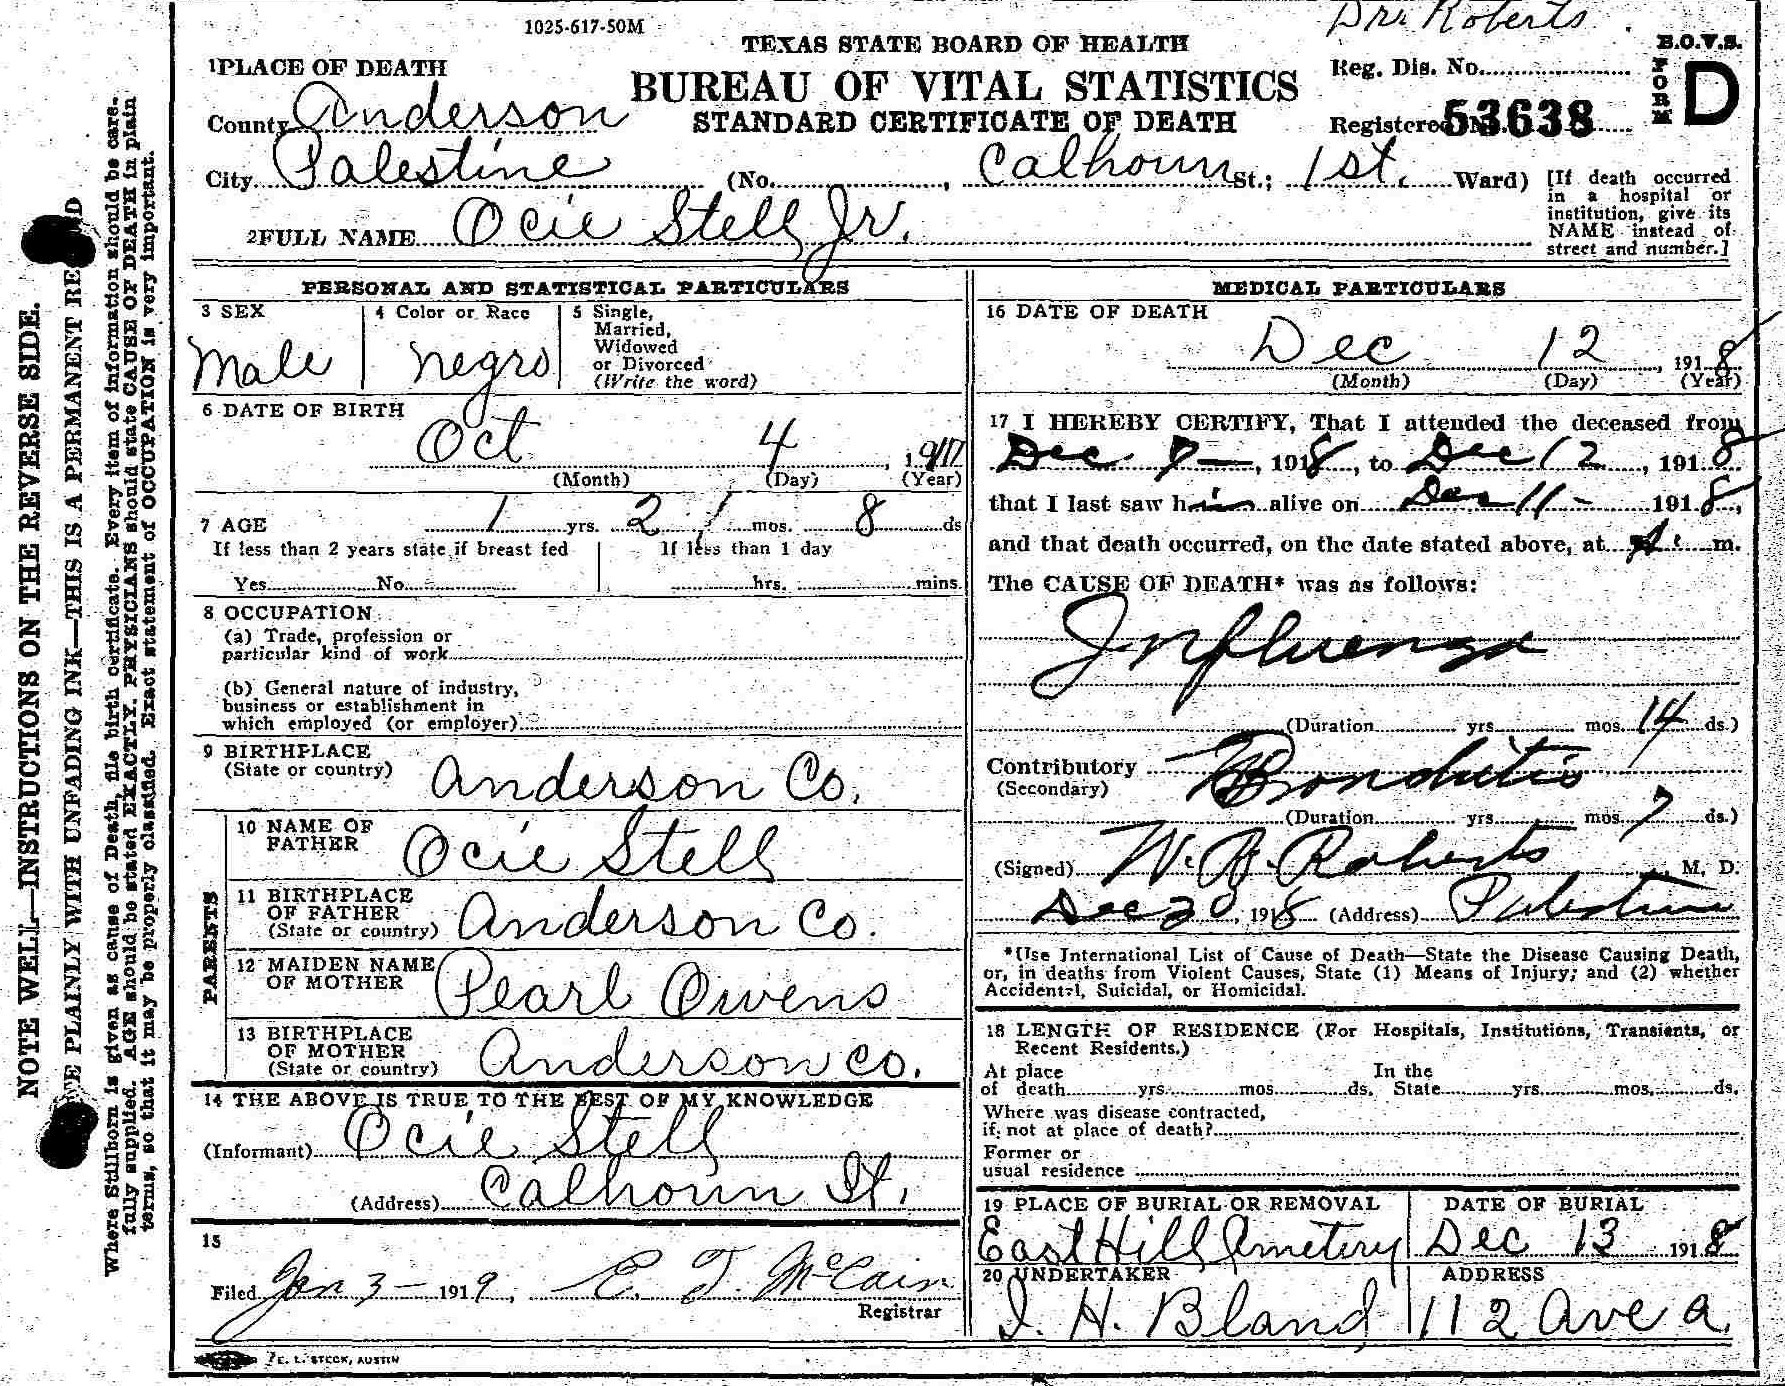 1025-617-50M
Dr. Roberts
TEXAS STATE BOARD OF HEALTH
BUREAU OF VITAL STATISTICS
STANDARD CERTIFICATE OF DEATH
B.O.V.S.
FORM D
Reg. Dis. No.
Registered No. 53638
1 PLACE OF DEATH
County Anderson
City Palestine (No. , Calhoun St.; 1st. Ward)
[If death occurred
in a hospital or
institution, give its
NAME instead of
street and number.]
2 FULL NAME Ocie Stell Jr.
PERSONAL AND STATISTICAL PARTICULARS
3 SEX
Male
4 Color or Race
Negro
5 Single,
Married,
Widowed
or Divorced
(Write the word)
6 DATE OF BIRTH
Oct 4, 1917
(Month) (Day) (Year)
7 AGE 1 yrs. 2 mos. 8 ds
If less than 2 years state if breast fed
Yes No
If less than 1 day
hrs. mins.
8 OCCUPATION
(a) Trade, profession or
particular kind of work
(b) General nature of industry,
business or establishment in
which employed (or employer)
9 BIRTHPLACE
(State or country) Anderson Co.
PARENTS
10 NAME OF
FATHER Ocie Stell
11 BIRTHPLACE
OF FATHER
(State or country) Anderson Co.
12 MAIDEN NAME
OF MOTHER Pearl Owens
13 BIRTHPLACE
OF MOTHER
(State or country) Anderson Co.
14 THE ABOVE IS TRUE TO THE BEST OF MY KNOWLEDGE
(Informant) Ocie Stell
(Address) Calhoun St.
15
Filed Jan 3- 1919, E. T. McCain
Registrar
MEDICAL PARTICULARS
16 DATE OF DEATH
Dec 12, 1918
(Month) (Day) (Year)
17 I HEREBY CERTIFY, That I attended the deceased from
Dec 7-, 1918, to Dec 12, 1918
that I last saw him alive on Dec 11- 1918,
and that death occurred, on the date stated above, at A. m.
The CAUSE OF DEATH* was as follows:
Influenza
(Duration yrs. mos. 14 ds.)
Contributory Bronchitis
(Secondary)
(Duration yrs. mos. 7 ds.)
(Signed) W. B. Roberts, M. D.
Dec 20, 1918 (Address) Palestine
*Use International List of Cause of Death—State the Disease Causing Death,
or, in deaths from Violent Causes, State (1) Means of Injury; and (2) whether
Accidental, Suicidal, or Homicidal.
18 LENGTH OF RESIDENCE (For Hospitals, Institutions, Transients, or
Recent Residents.)
At place In the
of death yrs. mos. ds. State yrs. mos. ds.
Where was disease contracted,
if not at place of death?
Former or
usual residence
19 PLACE OF BURIAL OR REMOVAL
East Hill Cemetery
DATE OF BURIAL
Dec 13 1918
20 UNDERTAKER
I. H. Bland
ADDRESS
112 Ave A.
E. L. STECK, AUSTIN
NOTE WELL—INSTRUCTIONS ON THE REVERSE SIDE.
PLAINLY WITH UNFADING INK—THIS IS A PERMANENT
Where Stillborn is given as cause of Death, file birth certificate. Every item of information should be care-
fully supplied. AGE should be stated EXACTLY. PHYSICIANS should state CAUSE OF DEATH in plain
terms, so that it may be properly classified. Exact statement of OCCUPATION is very important.